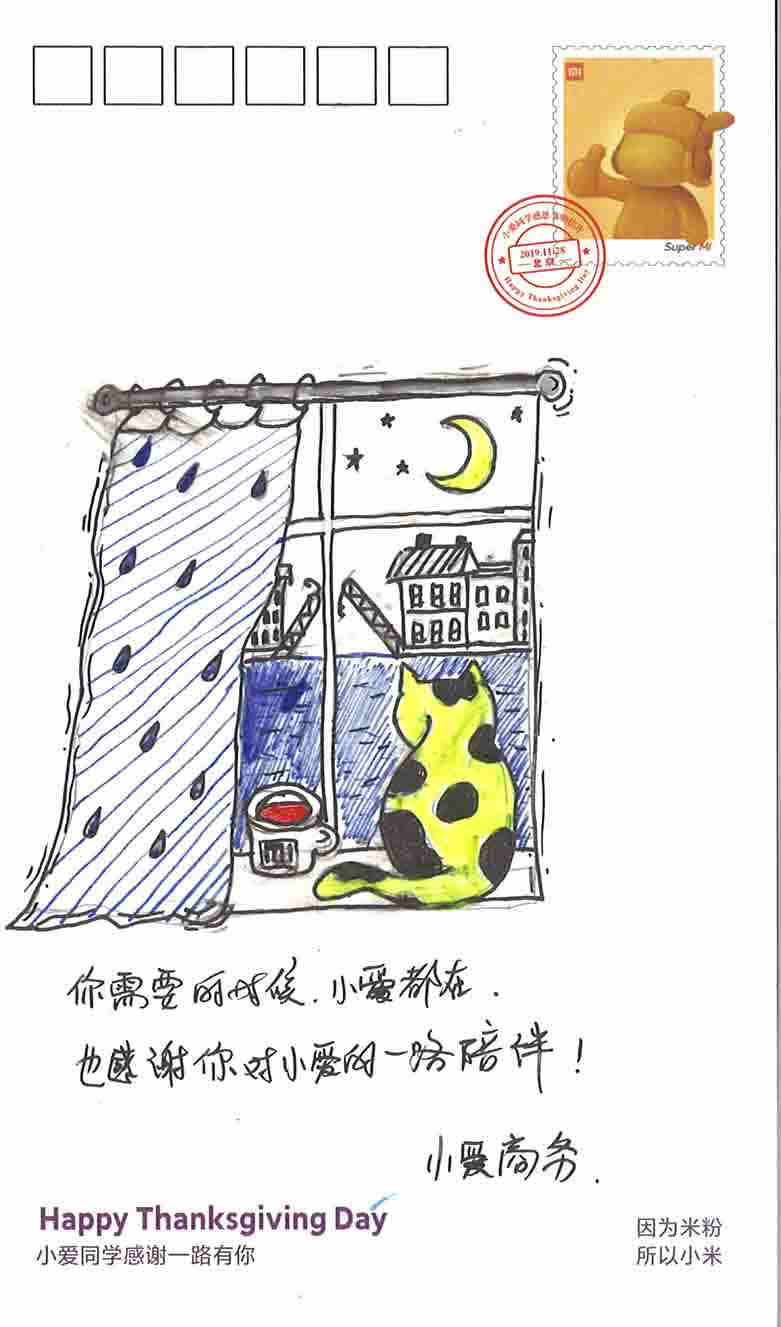 MI
Super MI
2019.11.28
北京
Happy Thanksgiving Day
MI
你需要的时候.小爱都在.
也感谢你对小爱的一路陪伴!
小爱商务.
Happy Thanksgiving Day
小爱同学感谢一路有你
因为米粉
所以小米